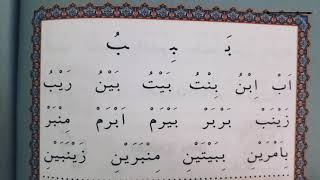 بَ بِ بُ
اَبْ اِبْنُ بِنْتُ بَيْتُ بَيْنُ رَيْبُ
زَيْنَبْ بَرْبَرْ بَيْرَمْ اَبْرَمْ مِنْبَرْ
بِاَمْرَيْنِ بِبَيْتَيْنِ مِنْبَرَيْنِ زَيْنَبَيْنِ